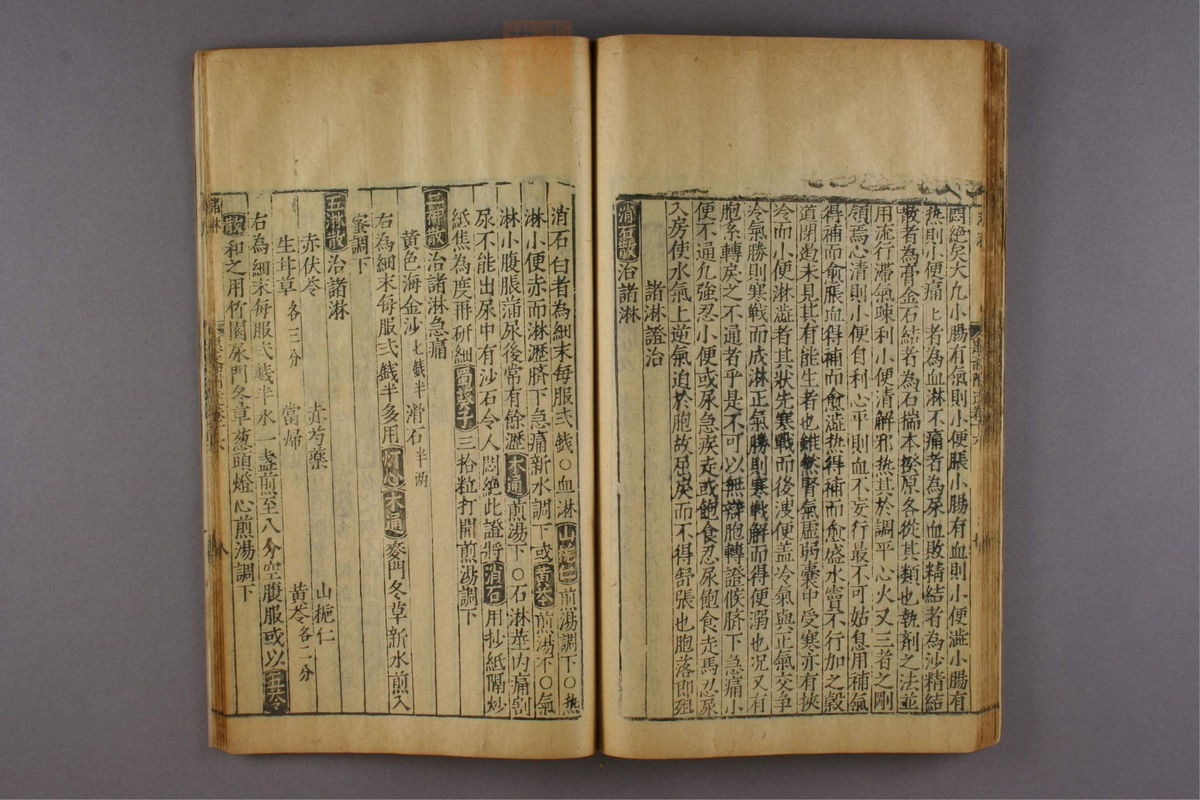 悶絶矣大凡小腸有氣則小便脹小腸有血則小便澁小腸有
熱則小便痛ヒ者為血淋不痛者為尿血敗精結者為沙精結
散者為膏金石結者為石揣本揆原各從其類也執剤之法並
用流行滯氣疎利小便清解邪熱其於調平心火又三者之剛
領焉心清則小便自利心平則血不妄行最不可姑息用補氣
得補而愈脹血得補而愈澁热得補而愈盛水竇不行加之穀
道閉遏未見其有能生者也雖然腎氣虛弱囊中受寒亦有挾
冷而小便淋澁者其狀先寒戰而後溲便盖冷氣與正氣交争
冷氣勝則寒戰而成淋正氣勝則寒戰解而得便溺也况又有
胞系轉戾之不通者乎是不可以無辯胞轉證候脐下急痛小
便不通九強忍小便或尿急疾走或飽食忍尿飽食走馬忍尿
入房使水氣上逆氣迫於胞故屈戾而不得舒張也胞落即殂
諸淋證治
消石散治諸淋
消石白者為細末每服弍錢○血淋山梔仁煎湯調下○热
淋小便赤而淋瀝脐下急痛新水調下或黄芩煎湯下○氣
淋小腹脹滿尿後常有餘瀝木通煎湯下○石淋莖内痛割
尿不能出尿中有沙石令人悶絶此證將消石用抄紙隔炒
紙焦為度再研細葡萄子三拾粒打開煎湯調下
二神散治諸淋急痛
黄色海金沙七錢半 滑石半两
右為細末每服弍錢半多用灯心木通麥門冬草新水煎入
蜜調下
五淋散治諸淋
赤伏苓 赤芍藥 山梔仁
生甘草各三分 當歸 黄芩各二分
右為細末每服弍錢半水一盞煎至八分空腹服或以五苓
散和之用竹園荽門冬草葱頭燈心煎湯調下
諸淋